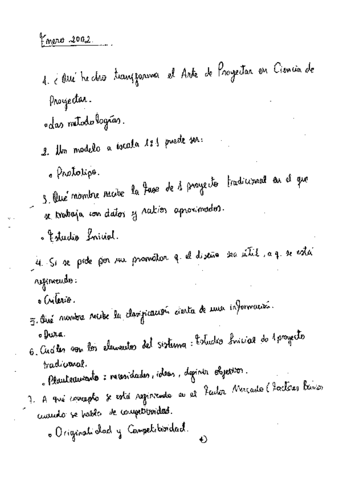 Enero 2002
1. ¿Qué hecho transforma el Arte de Proyectar en Ciencia de
Proyectar.
• Las metodologías.
2. Un modelo a escala 1:1 puede ser:
• Prototipo.
3. Qué nombre recibe la Fase de 1 proyecto tradicional en el que
se trabaja con datos y ratios aproximados.
• Estudio Inicial.
4. Si se pide por un promotor q. el diseño sea útil, a q. se está
refiriendo:
• Criterio.
5. Qué nombre recibe la clasificación cierta de una información.
• Dura.
6. Cuáles son los elementos del sistema: Estudio Inicial de 1 proyecto
tradicional.
• Planteamiento: necesidades, ideas, definir objetivos.
7. A qué concepto se está refiriendo en el Factor Mercado (Factores
cuando se habla de competitividad.
• Originalidad y Competitividad.